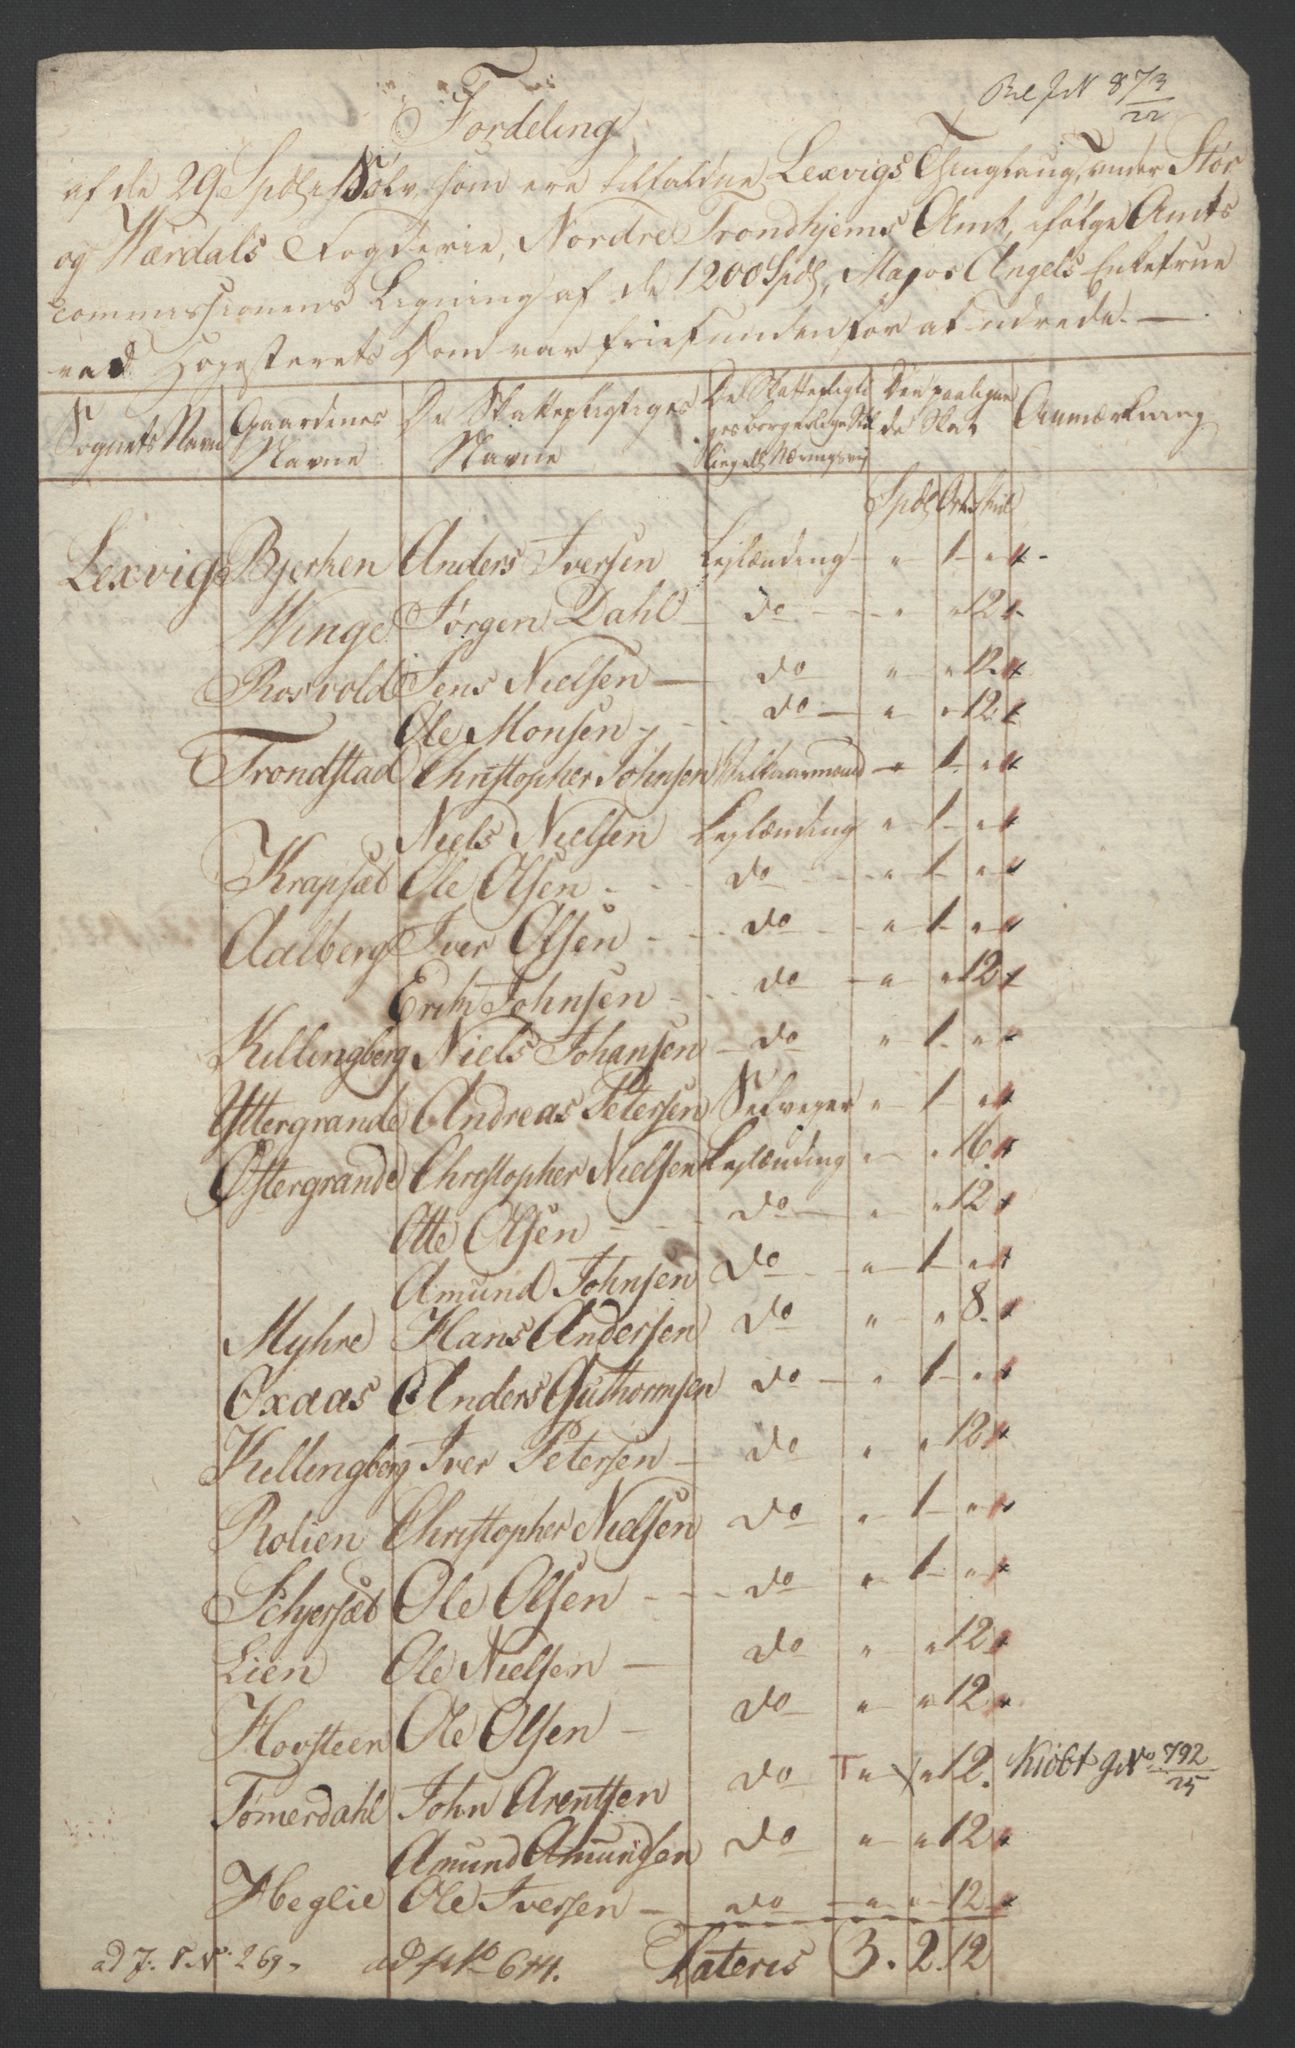 873
22
Fordeling
af de 29 Spdlr Sølv, som ere tilfaldne Lexvigs Thinglaug, under Stør
og Wærdals Fogderie, Nordre Trondhjems Amt, ifølge Amts
Commissionens Ligning af de 1200 Spdl, Major Angels Enkefrue
ved Høyesterets Dom var friefunden for at udrede. —
Sognets Navn Gaardenes Navne De Skattepligtiges Navne De Skattepligtiges borgerlige Næringsvej Den paaligne de Skat Anmærkning
Spdl Ort Skil
Lexvigs Bjerken Anders Iversen Lejlænding — " 1 — "
Winge Jørgen Dahl — do — " " 12
Rosvold Jens Nielsen — do " " 12.
Ole Monsen — do — " " 12
Trondstad Christopher Johnsen Wilkaarmand — " 1. "
Niels Nielsen Lejlænding " 1 — "
Krapsæt Ole Olsen - do - " 1 — "
Aalberg Iver Olsen - do - " 1 — "
Erik Johnsen - do — " " 12
Killingberg Niels Johansen — do " 1. "
Yttergrande Andreas Petersen Selveyer " 1 — "
Østergrande Christopher Nielsen Lejlænding " — " 16
Otte Olsen - do — " " 12.
Amund Johnsen do — " 1 — "
Myhre Hans Andersen do " " 8.
Oxaas Anders Guthormsen do — " 1 — "
Killingberg Iver Petersen — do " " 12
Rolien Christopher Nielsen do " 1 — "
Schjersæt Ole Olsen - do " 1 — "
Lien Ole Nielsen — do " " 12
Hovsteen Ole Olsen — do " " 12
Tømerdahl John Arentsen do T " " 12. Kiøbt 792
25
Amund Amundsen do " " 12
Heglie Ole Iversen — do — " " 12
Lateris 3. 2. 12
ad J. No 269. ad No 644.